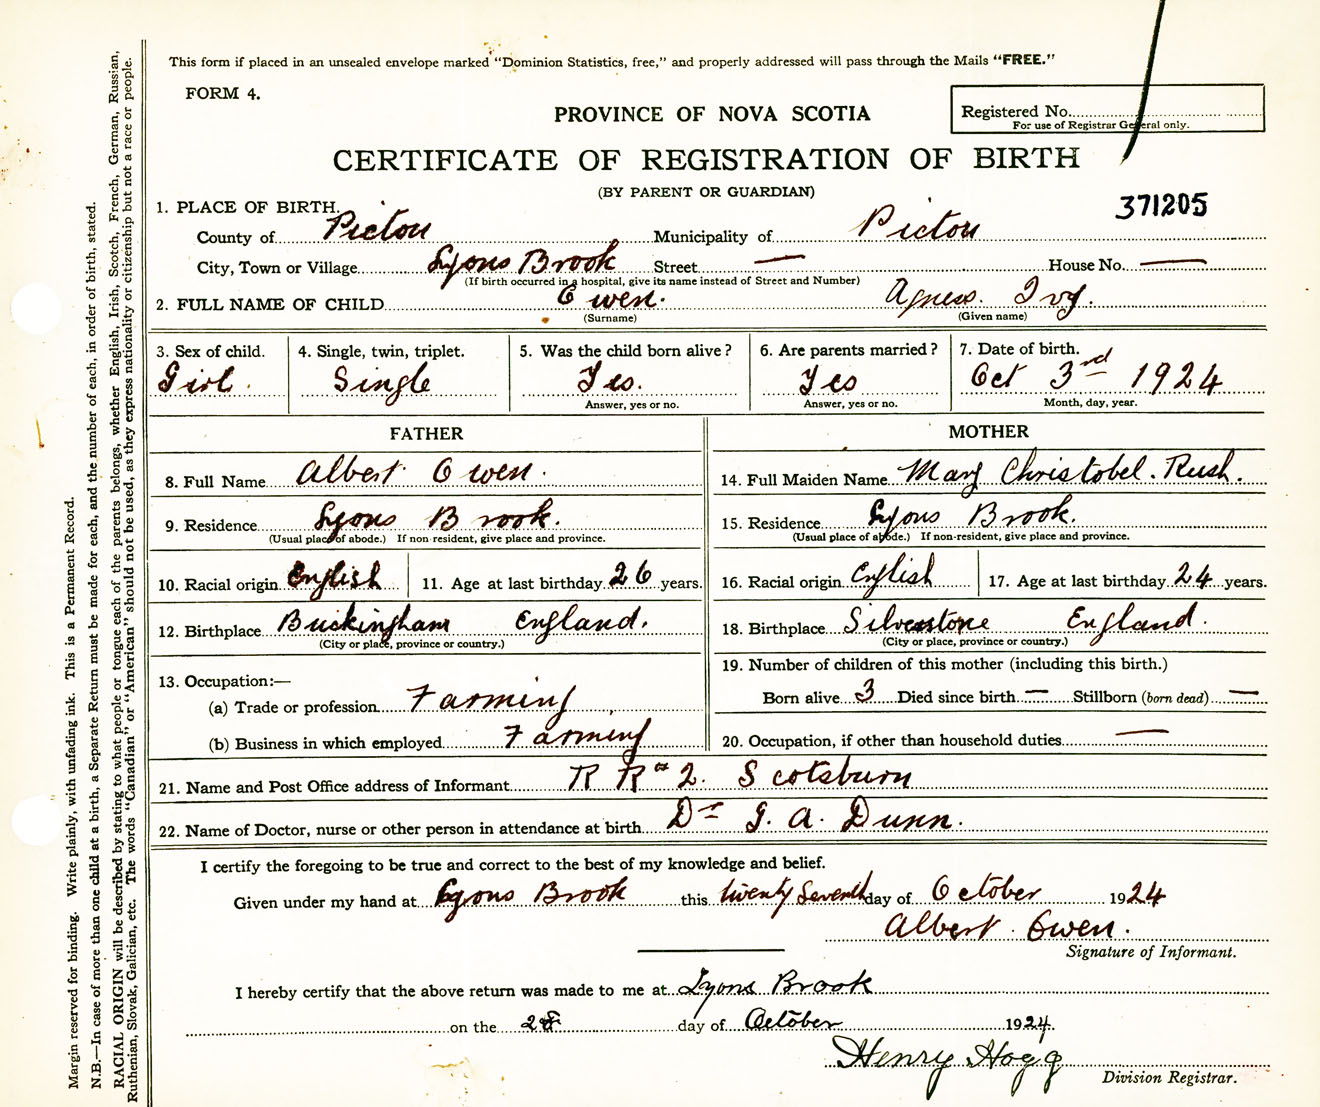 This form if placed in an unsealed envelope marked "Dominion Statistics, free," and properly addressed will pass through the Mails "FREE."
FORM 4.
PROVINCE OF NOVA SCOTIA
Registered No.
For use of Registrar General only.
CERTIFICATE OF REGISTRATION OF BIRTH
(BY PARENT OR GUARDIAN)
371205
1. PLACE OF BIRTH.
County of Pictou Municipality of Pictou
City, Town or Village Lyons Brook Street — House No. —
(If birth occurred in a hospital, give its name instead of Street and Number)
2. FULL NAME OF CHILD Owen. Agness. Ivy.
(Surname) (Given name)
3. Sex of child. 4. Single, twin, triplet. 5. Was the child born alive? 6. Are parents married? 7. Date of birth.
Girl. Single Yes. Yes Oct 3rd 1924
Answer, yes or no. Answer, yes or no. Month, day, year.
FATHER MOTHER
8. Full Name Albert Owen. 14. Full Maiden Name Mary Christobel. Rush.
9. Residence Lyons Brook. 15. Residence Lyons Brook.
(Usual place of abode.) If non-resident, give place and province. (Usual place of abode.) If non-resident, give place and province.
10. Racial origin English 11. Age at last birthday 26 years. 16. Racial origin English 17. Age at last birthday 24 years.
12. Birthplace Buckingham England. 18. Birthplace Silverstone England.
(City or place, province or country.) (City or place, province or country.)
13. Occupation:— 19. Number of children of this mother (including this birth.)
(a) Trade or profession Farming Born alive 3 Died since birth — Stillborn (born dead) —
(b) Business in which employed Farming 20. Occupation, if other than household duties —
21. Name and Post Office address of Informant R R # 2. Scotsburn
22. Name of Doctor, nurse or other person in attendance at birth Dr G. A. Dunn.
I certify the foregoing to be true and correct to the best of my knowledge and belief.
Given under my hand at Lyons Brook this twenty Seventh day of October 1924
Albert Owen.
Signature of Informant.
I hereby certify that the above return was made to me at Lyons Brook
on the 28 day of October 1924.
Henry Hogg
Division Registrar.
Margin reserved for binding. Write plainly, with unfading ink. This is a Permanent Record.
N.B.—In case of more than one child at a birth, a Separate Return must be made for each, and the number of each, in order of birth, stated.
RACIAL ORIGIN will be described by stating to what people or tongue each of the parents belongs, whether English, Irish, Scotch, French, German, Russian,
Ruthenian, Slovak, Galician, etc. The words "Canadian" or "American" should not be used, as they express nationality or citizenship but not a race or people.